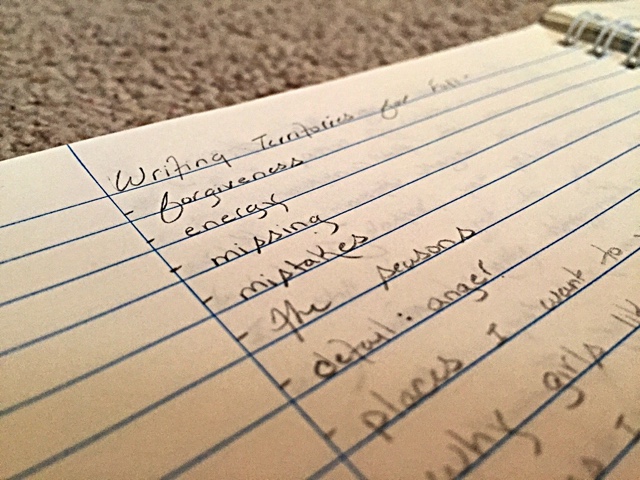 Writing Territories for Fall
- forgiveness
- energy
- missing
- mistakes
- The reasons
- detail: anger
- places I want to
why girls
I